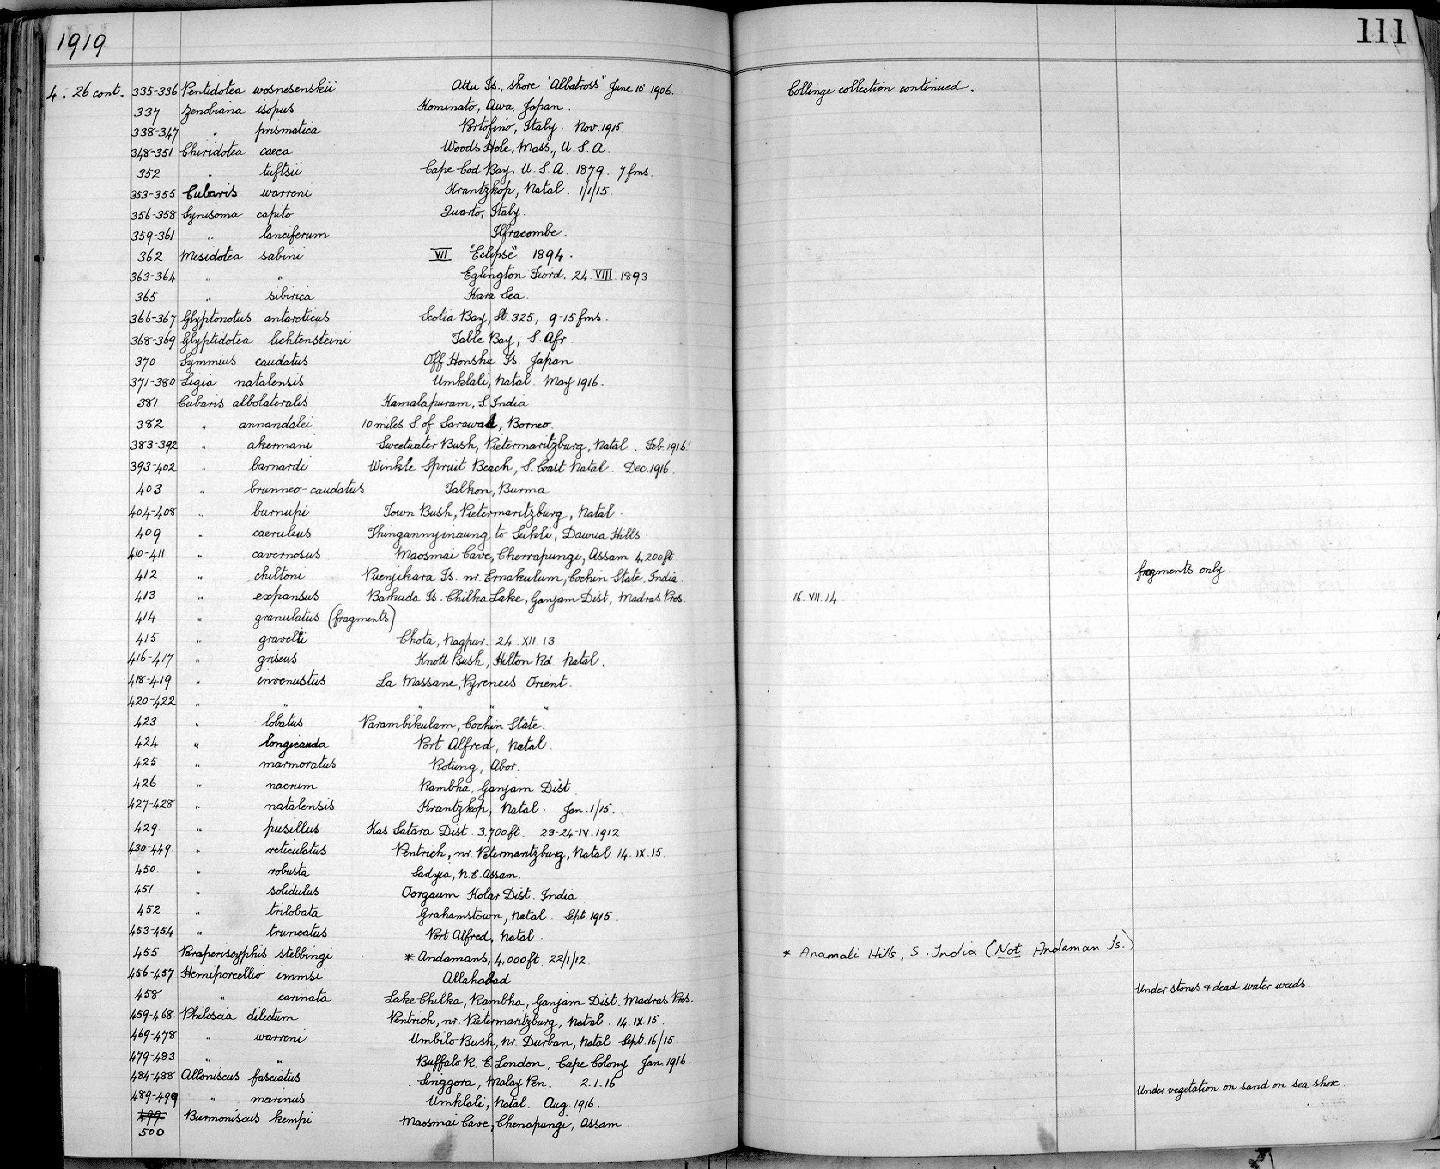 1919
111
4. 26 cont. 335-336 Pentidotea wosnesenskii Attu Is., shore "Albatross" June 10 1906. Collinge collection continued.
337 Zenobiana isopus Kominato, Awa, Japan.
338-347 " prismatica Portofino, Italy. Nov. 1915
348-351 Chiridotea caeca Woods Hole, Mass., U.S.A.
352 " tuftsii Cape Cod Bay. U.S.A. 1879. 7 fms.
353-355 Cubaris warreni Krantzkop, Natal. 1/1/15.
356-358 Synisoma capito Quarto, Italy.
359-361 " lanciferum Ilfracombe.
362 Mesidotea sabini VII "Eclipse" 1894.
363-364 " " Eglington Fiord. 24 VIII 1893
365 " sibirica Kara Sea.
366-367 Glyptonotus antarcticus Scotia Bay, St. 325, 9-15 fms.
368-369 Glyptidotea lichtensteini Table Bay, S. Afr.
370 Symmius caudatus Off Honshu Is. Japan
371-380 Ligia natalensis Umklali, Natal. May 1916.
381 Cubaris albolateralis Kamalapuram, S. India
382 " annandalei 10 miles S of Sarawak, Borneo.
383-392 " akermani Sweetwater Bush, Pietermaritzburg, Natal. Feb. 1916.
393-402 " barnardi Winkle Spruit Beach, S. Coast Natal. Dec. 1916.
403 " brunneo-caudatus Talkon, Burma
404-408 " burnupi Town Bush, Pietermaritzburg, Natal.
409 " caeruleus Thingannyinaung to Sukli, Dawna Hills
410-411 " cavernosus Maosmai Cave, Cherrapunge, Assam 4,200 ft
412 " chiltoni Vuenjikara Is. nr. Ernakulum, Cochin State. India fragments only
413 " expansus Barkuda Is. Chilka Lake, Ganjam Dist, Madras Pres. 16. VII. 14
414 " granulatus (fragments)
415 " gravelii Chota, Nagpur. 24. XII. 13
416-417 " griseus Knott Bush, Hilton Rd. Natal.
418-419 " invenustus La Massane, Pyrenees Orient.
420-422 " " " " "
423 " lobatus Parambikulam, Cochin State.
424 " longicauda Port Alfred, Natal.
425 " marmoratus Rotung, Abor.
426 " nacrum Rambha, Ganjam Dist.
427-428 " natalensis Krantzkop, Natal. Jan. 1/15.
429 " pusillus Kas Satara Dist. 3,700 ft. 23-24-IV. 1912
430-449 " reticulatus Pentrich, nr. Pietermaritzburg, Natal 14. IX. 15.
450 " robusta Sadyia, N.E. Assam.
451 " solidulus Oorgaum Kolar Dist. India
452 " trilobata Grahamstown, Natal. Sept. 1915.
453-454 " truncatus Port Alfred, Natal.
455 Paraperiscyphis stebbingi * Andamans, 4,000 ft 22/1/12. * Anamali Hills, S. India (Not Andaman Is.)
456-457 Hemiporcellio immsi Allahabad
458 " carinata Lake Chilka, Rambha, Ganjam Dist. Madras Pres. Under stones & dead water weeds
459-468 Philoscia dilectum Pentrich, nr. Pietermaritzburg, Natal. 14. IX. 15.
469-478 " warreni Umbilo Bush, nr. Durban, Natal Sept. 16/15
479-483 " " Buffalo R. E. London, Cape Colony Jan. 1916
484-488 Alloniscus fasciatus Singgora, Malay Pen. 2.1.16
489-499 " marinus Umklali, Natal. Aug. 1916. Under vegetation on sand on sea shore.
499 Burmoniscus kempi Maosmai Cave, Cherrapunge, Assam
500